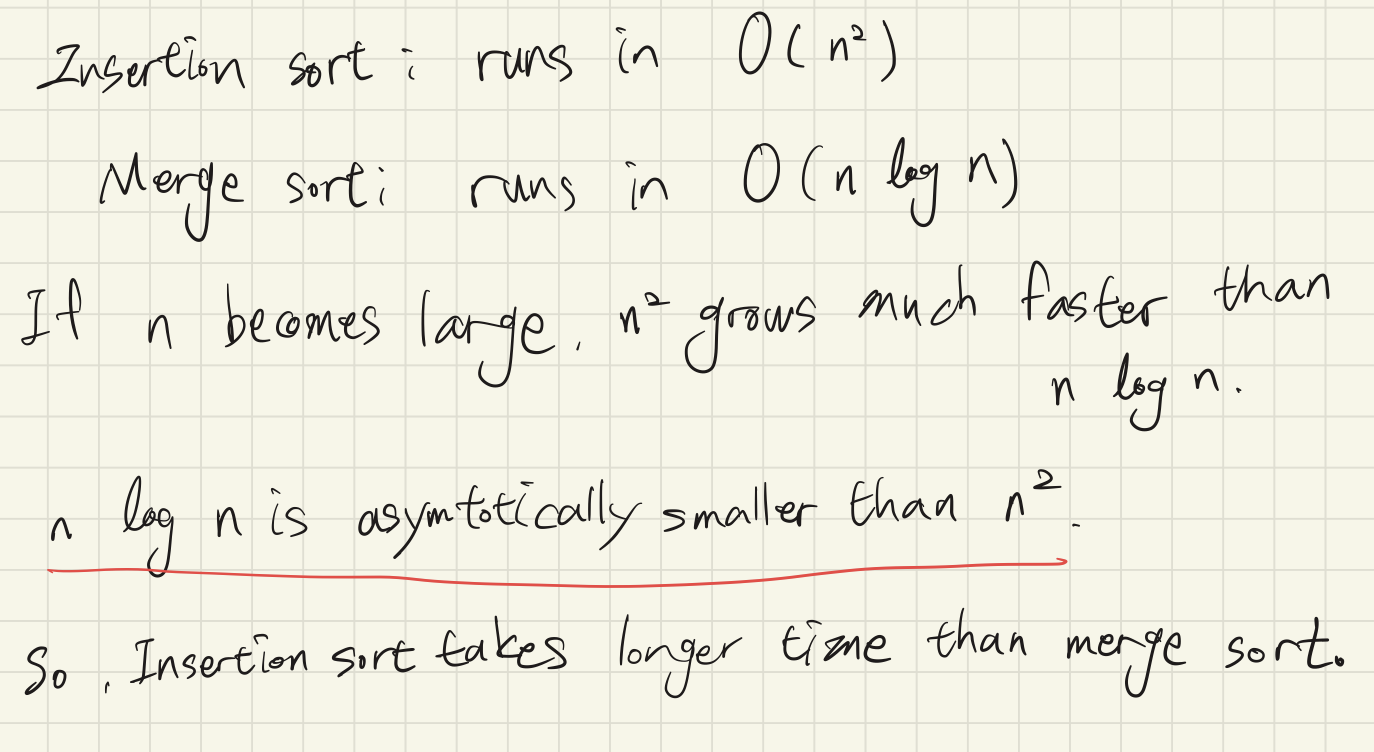 Insertion sort : runs in O( n²)
Merge sort : runs in O(n log n)
If n becomes large, n² grows much faster than
n log n.
n log n is asymtotically smaller than n².
So, Insertion sort takes longer time than merge sort.